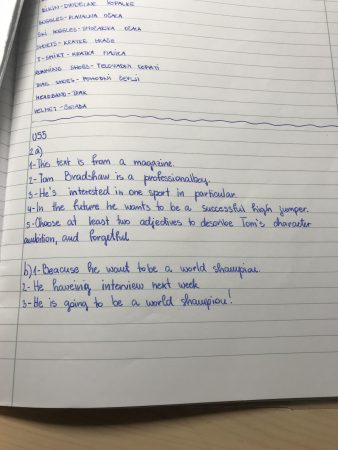 BIKINI-DVODELNE KOPALKE
GOGGLES-PLAVALNA OČALA
SKI GOGGLES-SMUČARSKA OČALA
SHORTS-KRATKE HLAČE
T-SHIRT-KRATKA MAJICA
RUNNING SHOES-TELOVADNI COPATI
TRAIL SHOES-POHODNI ČEVLJI
HEADBAND-TRAK
HELMET-ČELADA
USS
2a)
1-This text is from a magazine.
2-Tom Bradshaw is a professionalboy.
3-He's interested in one sport in particular.
4-In the future he wants to be a successful high jumper.
5-Choose at least two adjectives to describe Tom's character
ambition, and forgetful
b)1-Beacuse he want to be a world shampion.
2-He haveing interview next week
3-He is going to be a world shampion!